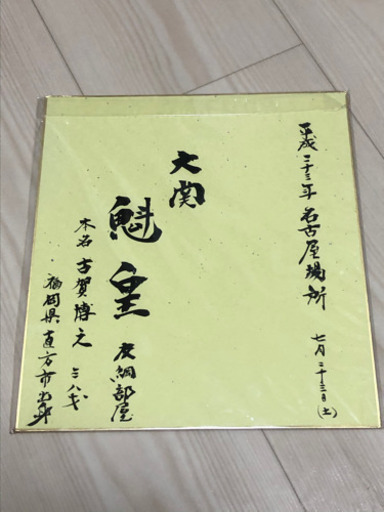 平成二十三年 名古屋場所
七月二十三日(土)
大関
魁皇
友綱部屋
本名 古賀博之 三八才
福岡県直方市出身